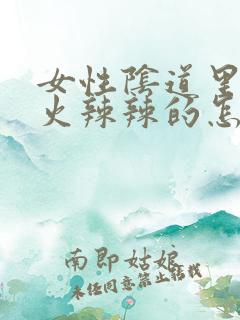 女性陰道里
火辣辣的怎
南即姑娘
未经同意禁止转载